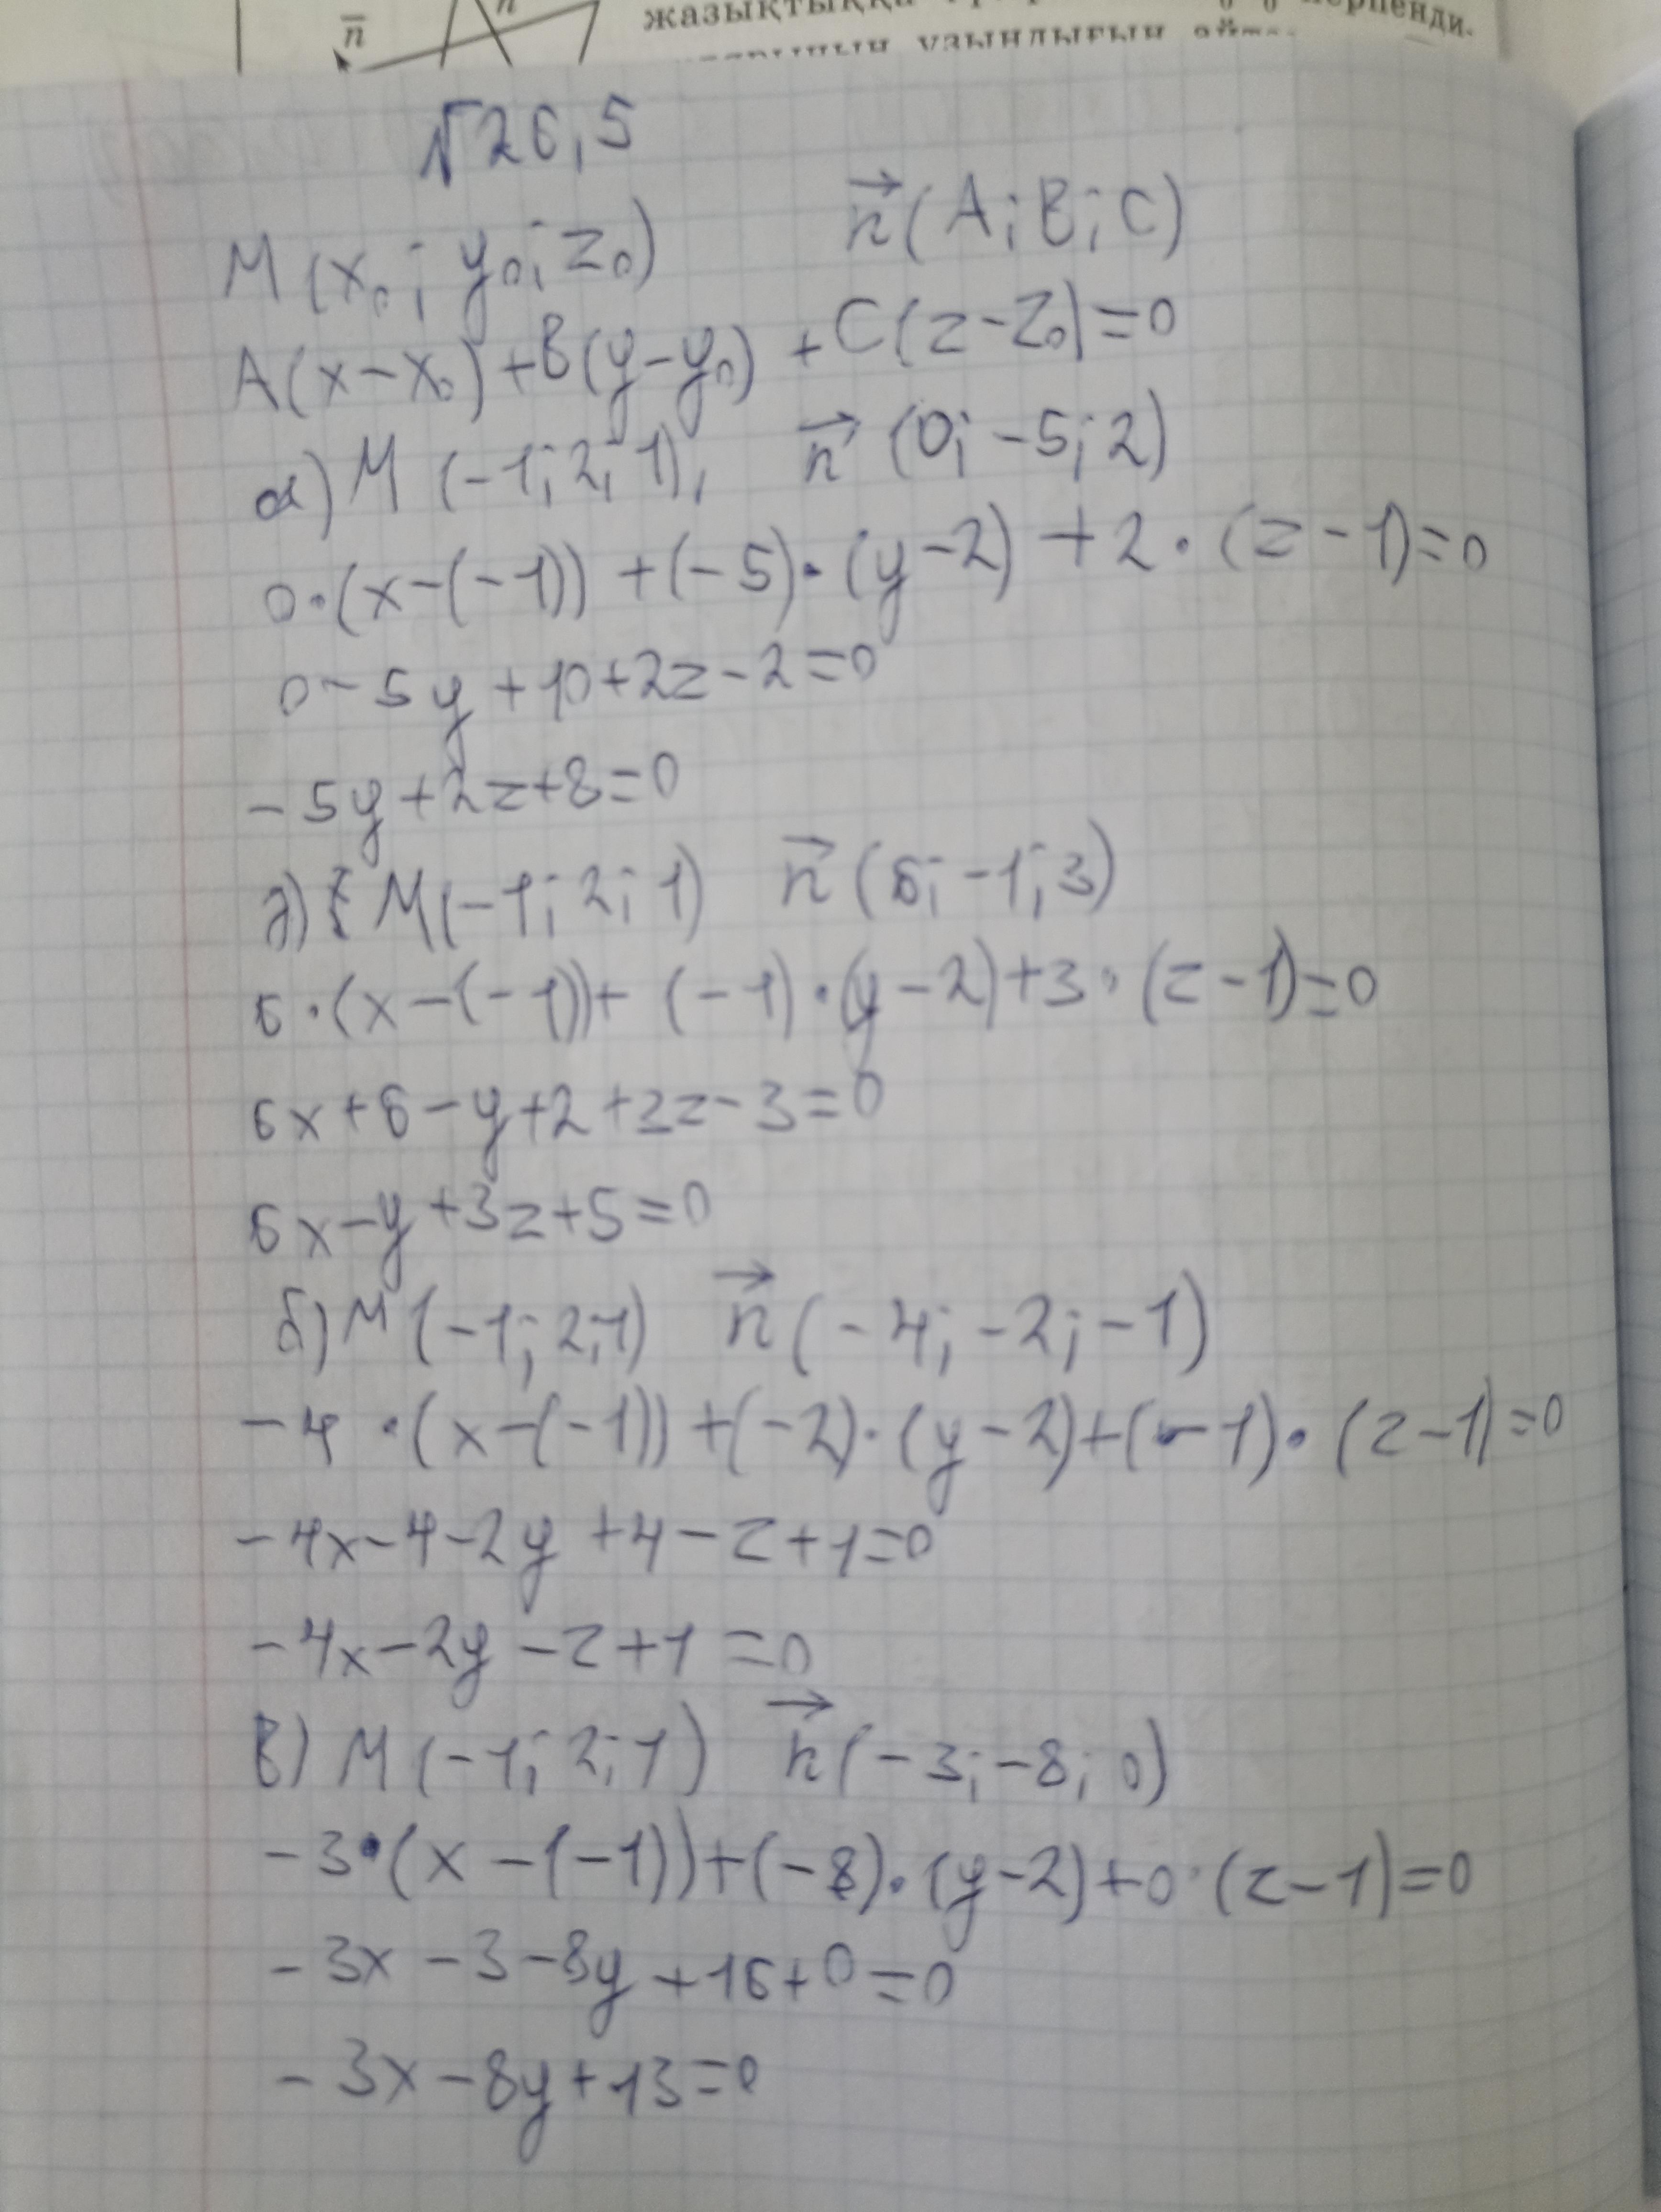 n̄ n
жазықтыққа
ұзындығын
№26,5
M(x₀; y₀; z₀) n⃗(A; B; C)
A(x-x₀)+B(y-y₀)+C(z-z₀)=0
а) M(-1; 2; 1), n⃗(0; -5; 2)
0·(x-(-1))+(-5)·(y-2)+2·(z-1)=0
0-5y+10+2z-2=0
-5y+2z+8=0
ә) M(-1; 2; 1) n⃗(6; -1; 3)
6·(x-(-1))+(-1)·(y-2)+3·(z-1)=0
6x+6-y+2+3z-3=0
6x-y+3z+5=0
б) M(-1; 2; 1) n⃗(-4; -2; -1)
-4·(x-(-1))+(-2)·(y-2)+(-1)·(z-1)=0
-4x-4-2y+4-z+1=0
-4x-2y-z+1=0
в) M(-1; 2; 1) n⃗(-3; -8; 0)
-3·(x-(-1))+(-8)·(y-2)+0·(z-1)=0
-3x-3-8y+16+0=0
-3x-8y+13=0